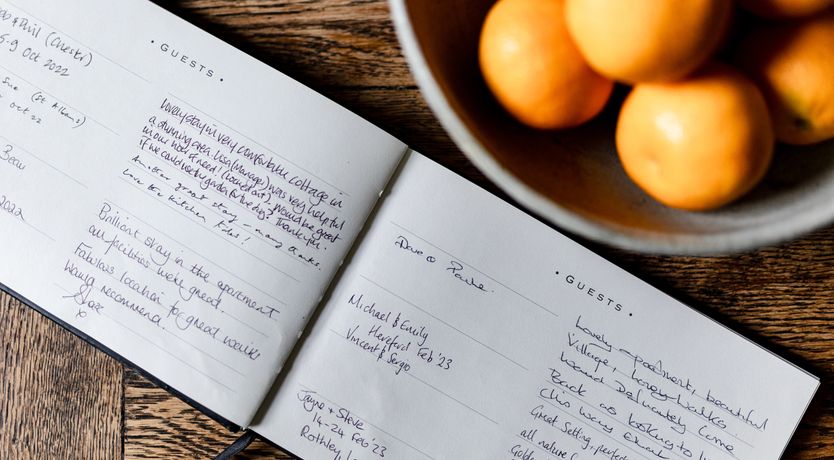 & Phil (Chester)
5-9 Oct 2022
Sue (St Albans)
Oct 22
Beau
2022
• GUESTS •
Lovely stay in very comfortable cottage in
a stunning area. Lisa (Manager) was very helpful
in our hour of need! (locked out). Would be great
if we could use the garden for the dogs? Thank you.
Another great stay - many thanks.
Love the kitchen
Brilliant stay in the apartment
all facilities were great.
Fabulous location for great walks
Would recommend.
x
Dave & Paula.
Michael & Emily
Hereford Feb '23
Vincent & Sergio
Jayne & Steve
14-24 Feb '23
Rothley
• GUESTS •
Lovely apartment, beautiful
Village, lovely walks.
Would Definately Come
Back as looking to
this way
Great Setting, perfect
all nature